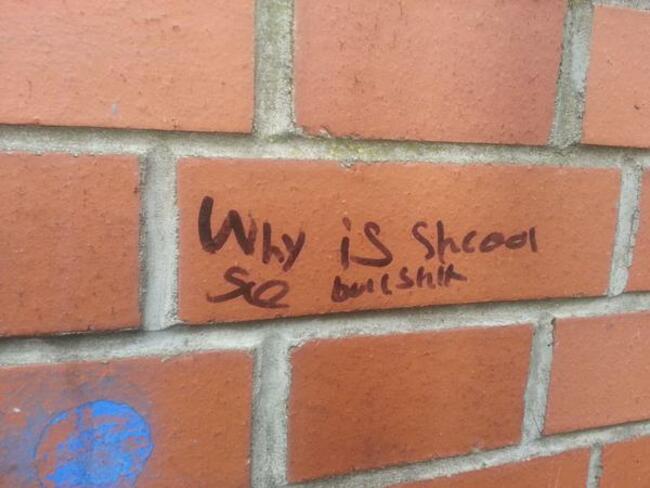 Why is Shcool
So bullshit